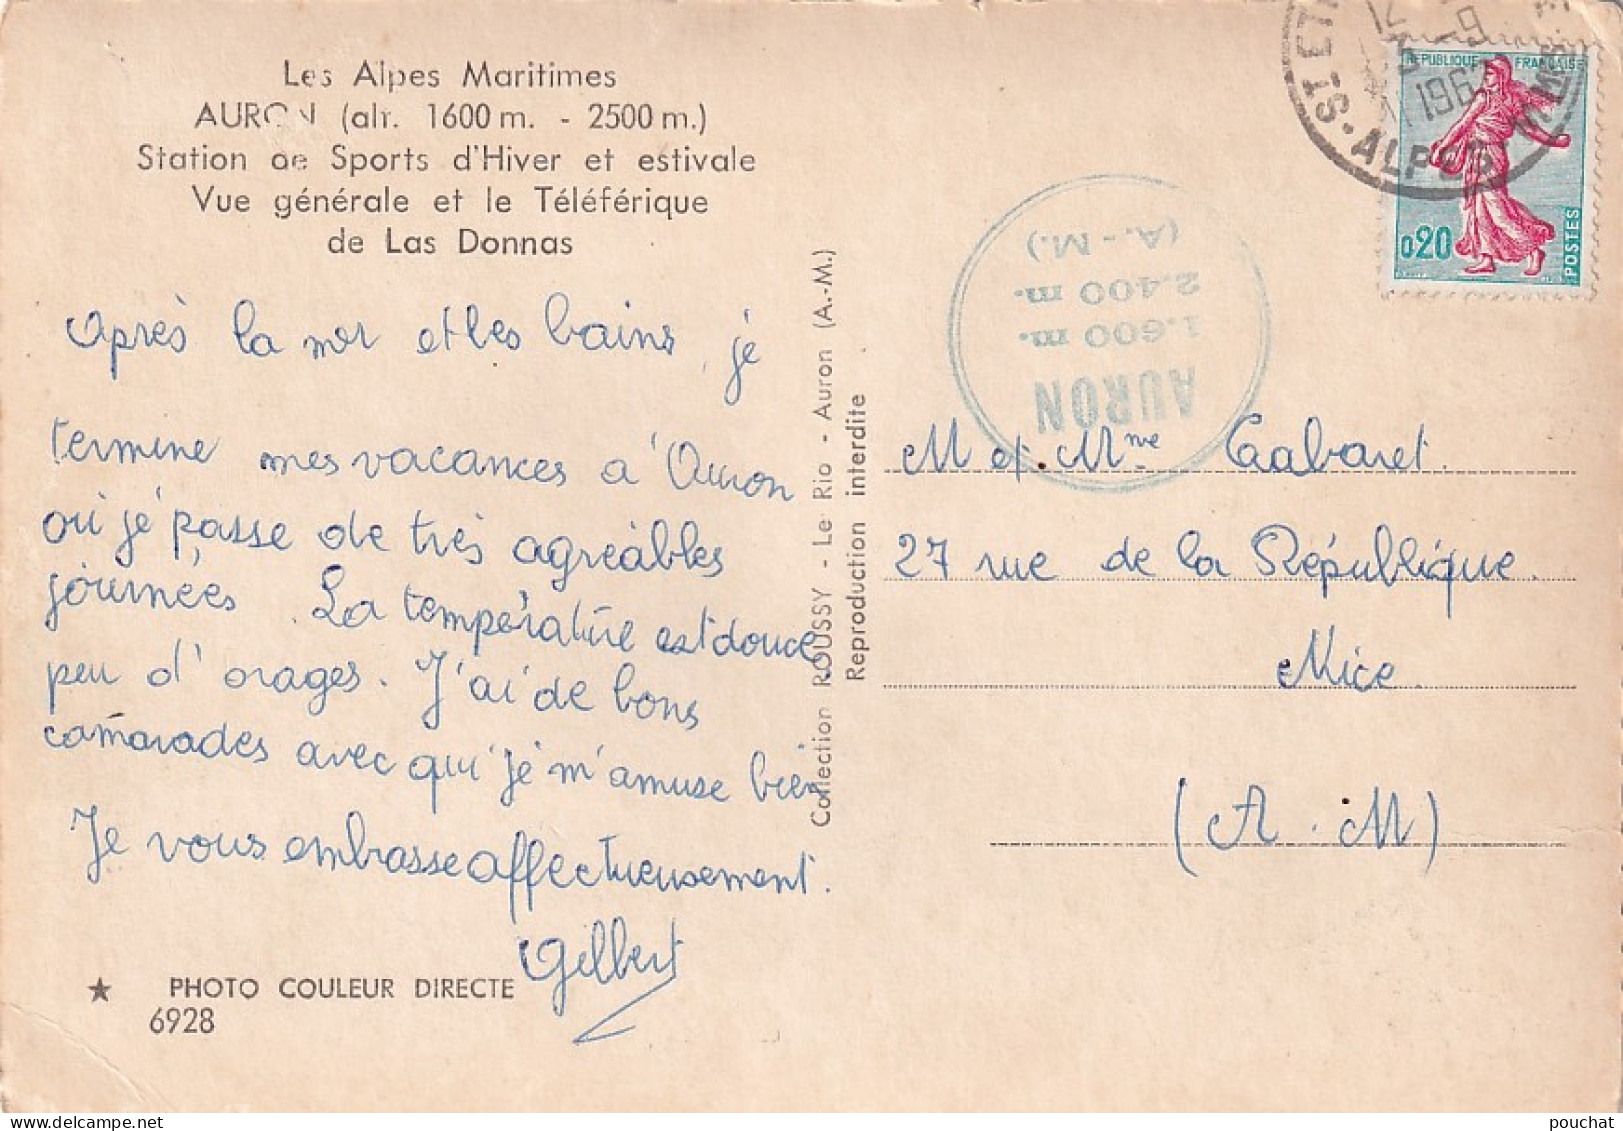 Les Alpes Maritimes
AURON (alt. 1600 m. - 2500 m.)
Station de Sports d'Hiver et estivale
Vue générale et le Téléférique
de Las Donnas
Après la mer et les bains, je
termine mes vacances à Auron
où je passe de très agréables
journées. La température est douce
peu d'orages. J'ai de bons
camarades avec qui je m'amuse bien
Je vous embrasse affectueusement.
Gilbert
★ PHOTO COULEUR DIRECTE
6928
Collection ROUSSY - Le Rio - Auron (A.-M.)
Reproduction interdite
AURON
1.600 m.
2.400 m.
(A.-M.)
ST ETI
ALPES
REPUBLIQUE FRANÇAISE
0,20
POSTES
M et Mme Cabaret.
27 rue de la République.
Nice.
(A.M)
pouchat